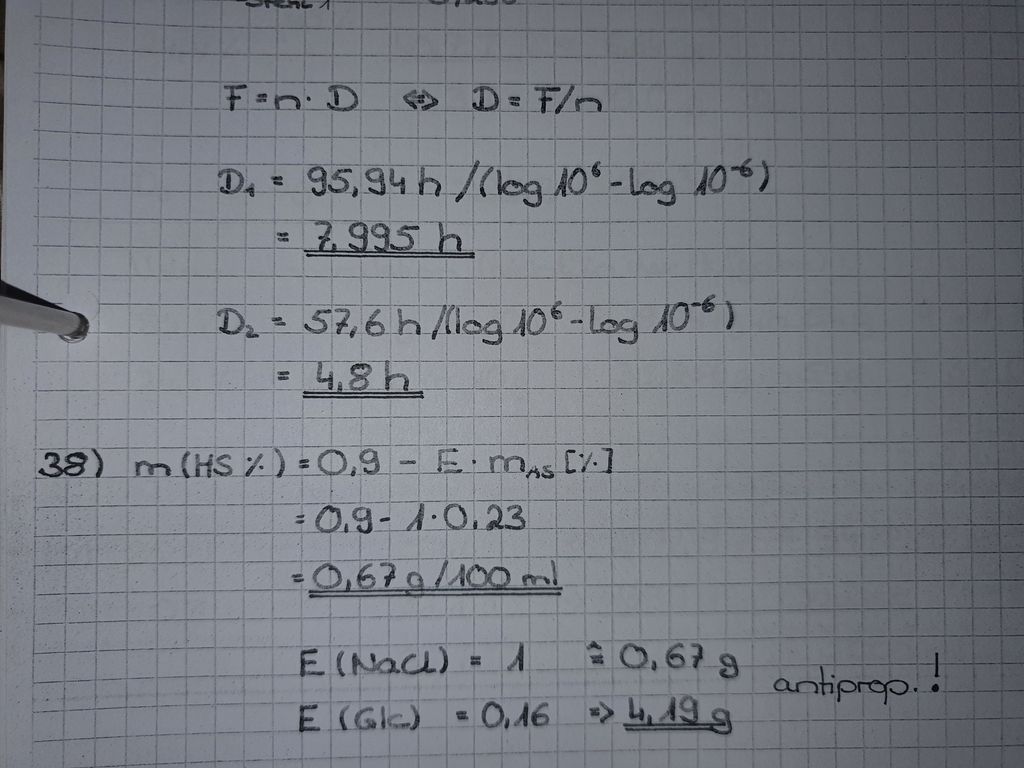 F = n · D ⇔ D = F/n
D₁ = 95,94 h /(log 10⁶ - log 10⁻⁶)
= 7,995 h
D₂ = 57,6 h /(log 10⁶ - log 10⁻⁶)
= 4,8 h
38) m (HS %) = 0,9 - E · m_AS [%]
= 0,9 - 1 · 0,23
= 0,67 g / 100 ml
E (NaCl) = 1 ≙ 0,67 g
antiprop. !
E (Glc) = 0,16 => 4,19 g